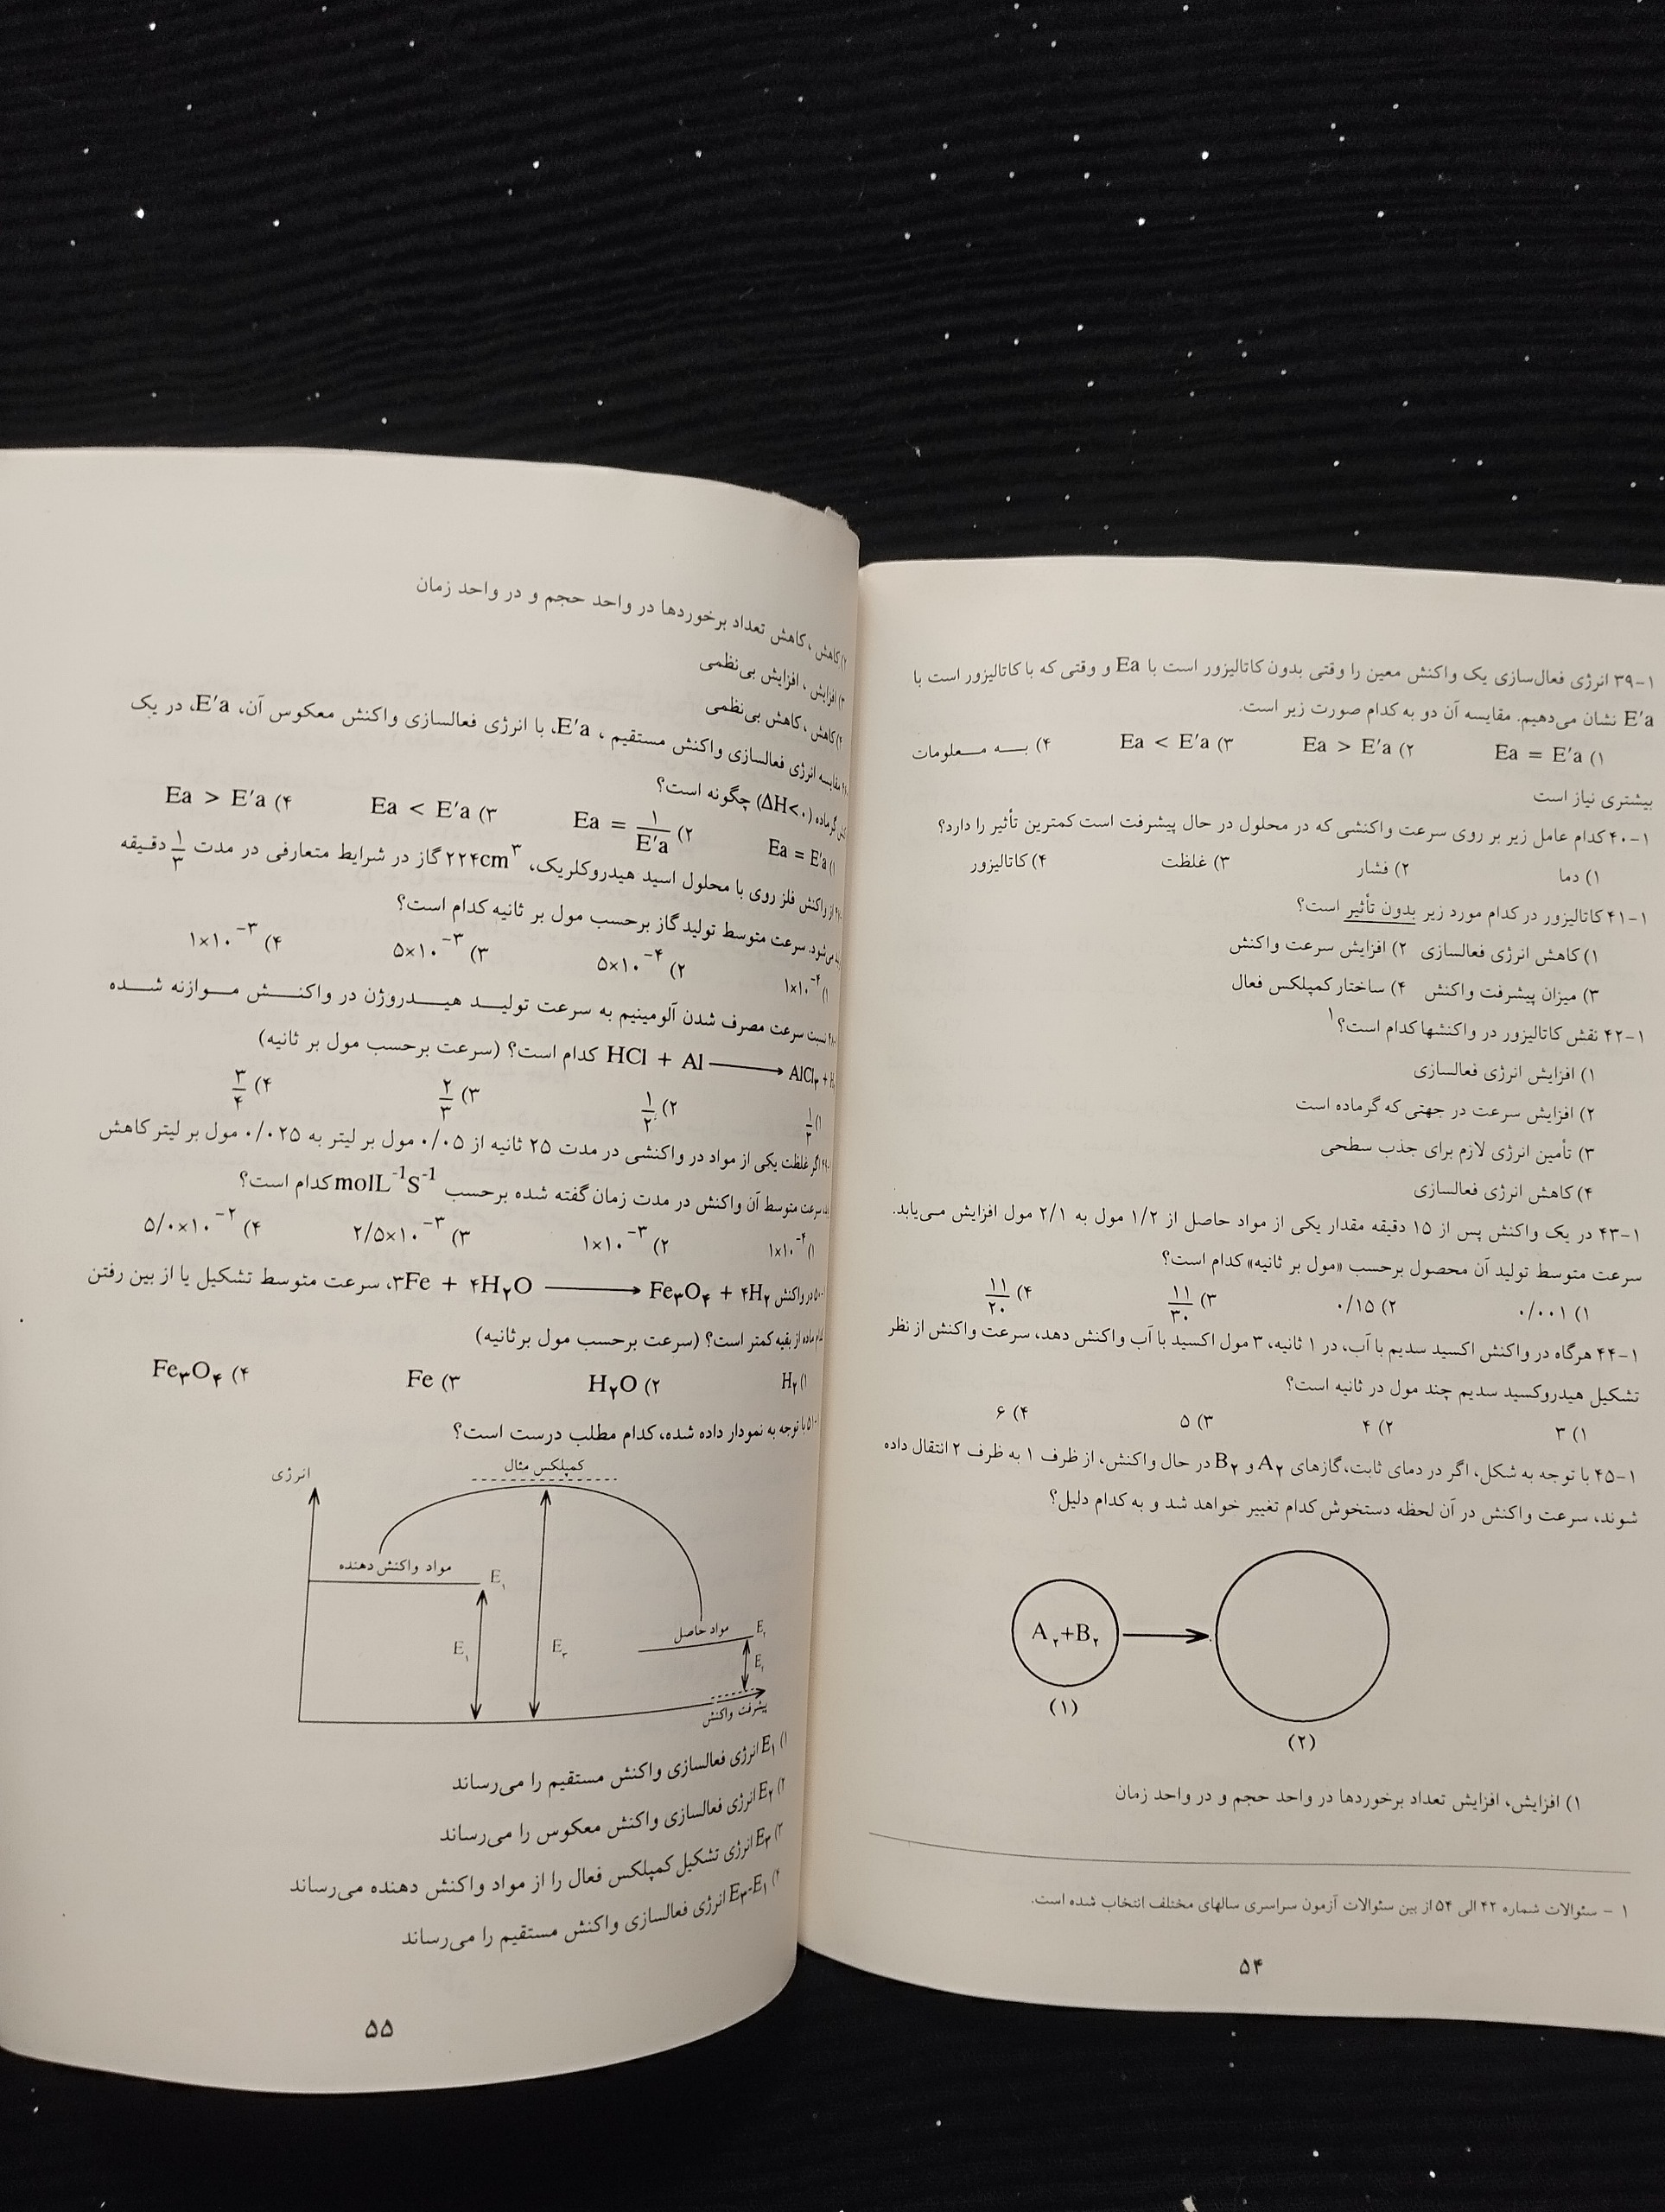 ۱-۳۹ انرژی فعال‌سازی یک واکنش معین را وقتی بدون کاتالیزور است با Ea و وقتی که با کاتالیزور است با
E′a نشان می‌دهیم. مقایسه آن دو به کدام صورت زیر است.
۱) Ea = E′a ۲) Ea > E′a ۳) Ea < E′a ۴) به معلومات
بیشتری نیاز است
۱-۴۰ کدام عامل زیر بر روی سرعت واکنشی که در محلول در حال پیشرفت است کمترین تأثیر را دارد؟
۱) دما ۲) فشار ۳) غلظت ۴) کاتالیزور
۱-۴۱ کاتالیزور در کدام مورد زیر بدون تأثیر است؟
۱) کاهش انرژی فعالسازی ۲) افزایش سرعت واکنش
۳) میزان پیشرفت واکنش ۴) ساختار کمپلکس فعال
۱-۴۲ نقش کاتالیزور در واکنشها کدام است؟۱
۱) افزایش انرژی فعالسازی
۲) افزایش سرعت در جهتی که گرماده است
۳) تأمین انرژی لازم برای جذب سطحی
۴) کاهش انرژی فعالسازی
۱-۴۳ در یک واکنش پس از ۱۵ دقیقه مقدار یکی از مواد حاصل از ۱/۲ مول به ۲/۱ مول افزایش می‌یابد.
سرعت متوسط تولید آن محصول برحسب «مول بر ثانیه» کدام است؟
۱) ۰/۰۰۱ ۲) ۰/۱۵ ۳) ۱۱/۳۰ ۴) ۱۱/۲۰
۱-۴۴ هرگاه در واکنش اکسید سدیم با آب، در ۱ ثانیه، ۳ مول اکسید با آب واکنش دهد، سرعت واکنش از نظر
تشکیل هیدروکسید سدیم چند مول در ثانیه است؟
۱) ۳ ۲) ۴ ۳) ۵ ۴) ۶
۱-۴۵ با توجه به شکل، اگر در دمای ثابت، گازهای A۲ و B۲ در حال واکنش، از ظرف ۱ به ظرف ۲ انتقال داده
شوند، سرعت واکنش در آن لحظه دستخوش کدام تغییر خواهد شد و به کدام دلیل؟
A۲+B۲
(۱)
(۲)
۱) افزایش، افزایش تعداد برخوردها در واحد حجم و در واحد زمان
۱ - سئوالات شماره ۴۲ الی ۵۴ از بین سئوالات آزمون سراسری سالهای مختلف انتخاب شده است.
۵۴
۲) کاهش، کاهش تعداد برخوردها در واحد حجم و در واحد زمان
۳) افزایش، افزایش بی‌نظمی
۴) کاهش، کاهش بی‌نظمی
مقایسه انرژی فعالسازی واکنش مستقیم، E′a، با انرژی فعالسازی واکنش معکوس آن، E′a، در یک
گرماده (ΔH<۰) چگونه است؟
۱) Ea = E′a ۲) Ea = ۱/E′a ۳) Ea < E′a ۴) Ea > E′a
از واکنش فلز روی با محلول اسید هیدروکلریک، ۲۲۴cm۳ گاز در شرایط متعارفی در مدت ۱/۳ دقیقه
می‌شود. سرعت متوسط تولید گاز برحسب مول بر ثانیه کدام است؟
۱) ۱×۱۰−۴ ۲) ۵×۱۰−۴ ۳) ۵×۱۰−۳ ۴) ۱×۱۰−۳
نسبت سرعت مصرف شدن آلومینیم به سرعت تولید هیدروژن در واکنش موازنه شده
HCl + Al ⟶ AlCl۳ + H کدام است؟ (سرعت برحسب مول بر ثانیه)
۲) ۱/۲ ۳) ۲/۳ ۴) ۳/۴
اگر غلظت یکی از مواد در واکنشی در مدت ۲۵ ثانیه از ۰/۰۵ مول بر لیتر به ۰/۰۲۵ مول بر لیتر کاهش
سرعت متوسط آن واکنش در مدت زمان گفته شده برحسب molL-1S-1 کدام است؟
۱) ۱×۱۰−۴ ۲) ۱×۱۰−۳ ۳) ۲/۵×۱۰−۳ ۴) ۵/۰×۱۰−۲
۵۰- در واکنش ۳Fe + ۴H۲O ⟶ Fe۳O۴ + ۴H۲، سرعت متوسط تشکیل یا از بین رفتن
کدام ماده از بقیه کمتر است؟ (سرعت برحسب مول بر ثانیه)
۱) H۲ ۲) H۲O ۳) Fe ۴) Fe۳O۴
۵۱- با توجه به نمودار داده شده، کدام مطلب درست است؟
انرژی
کمپلکس مثال
مواد واکنش دهنده
E۱
مواد حاصل
E۲
E۱
E۳
E۲
پیشرفت واکنش
۱) E۱ انرژی فعالسازی واکنش مستقیم را می‌رساند
۲) E۲ انرژی فعالسازی واکنش معکوس را می‌رساند
۳) E۳ انرژی تشکیل کمپلکس فعال را از مواد واکنش دهنده می‌رساند
۴) E۳-E۱ انرژی فعالسازی واکنش مستقیم را می‌رساند
۵۵